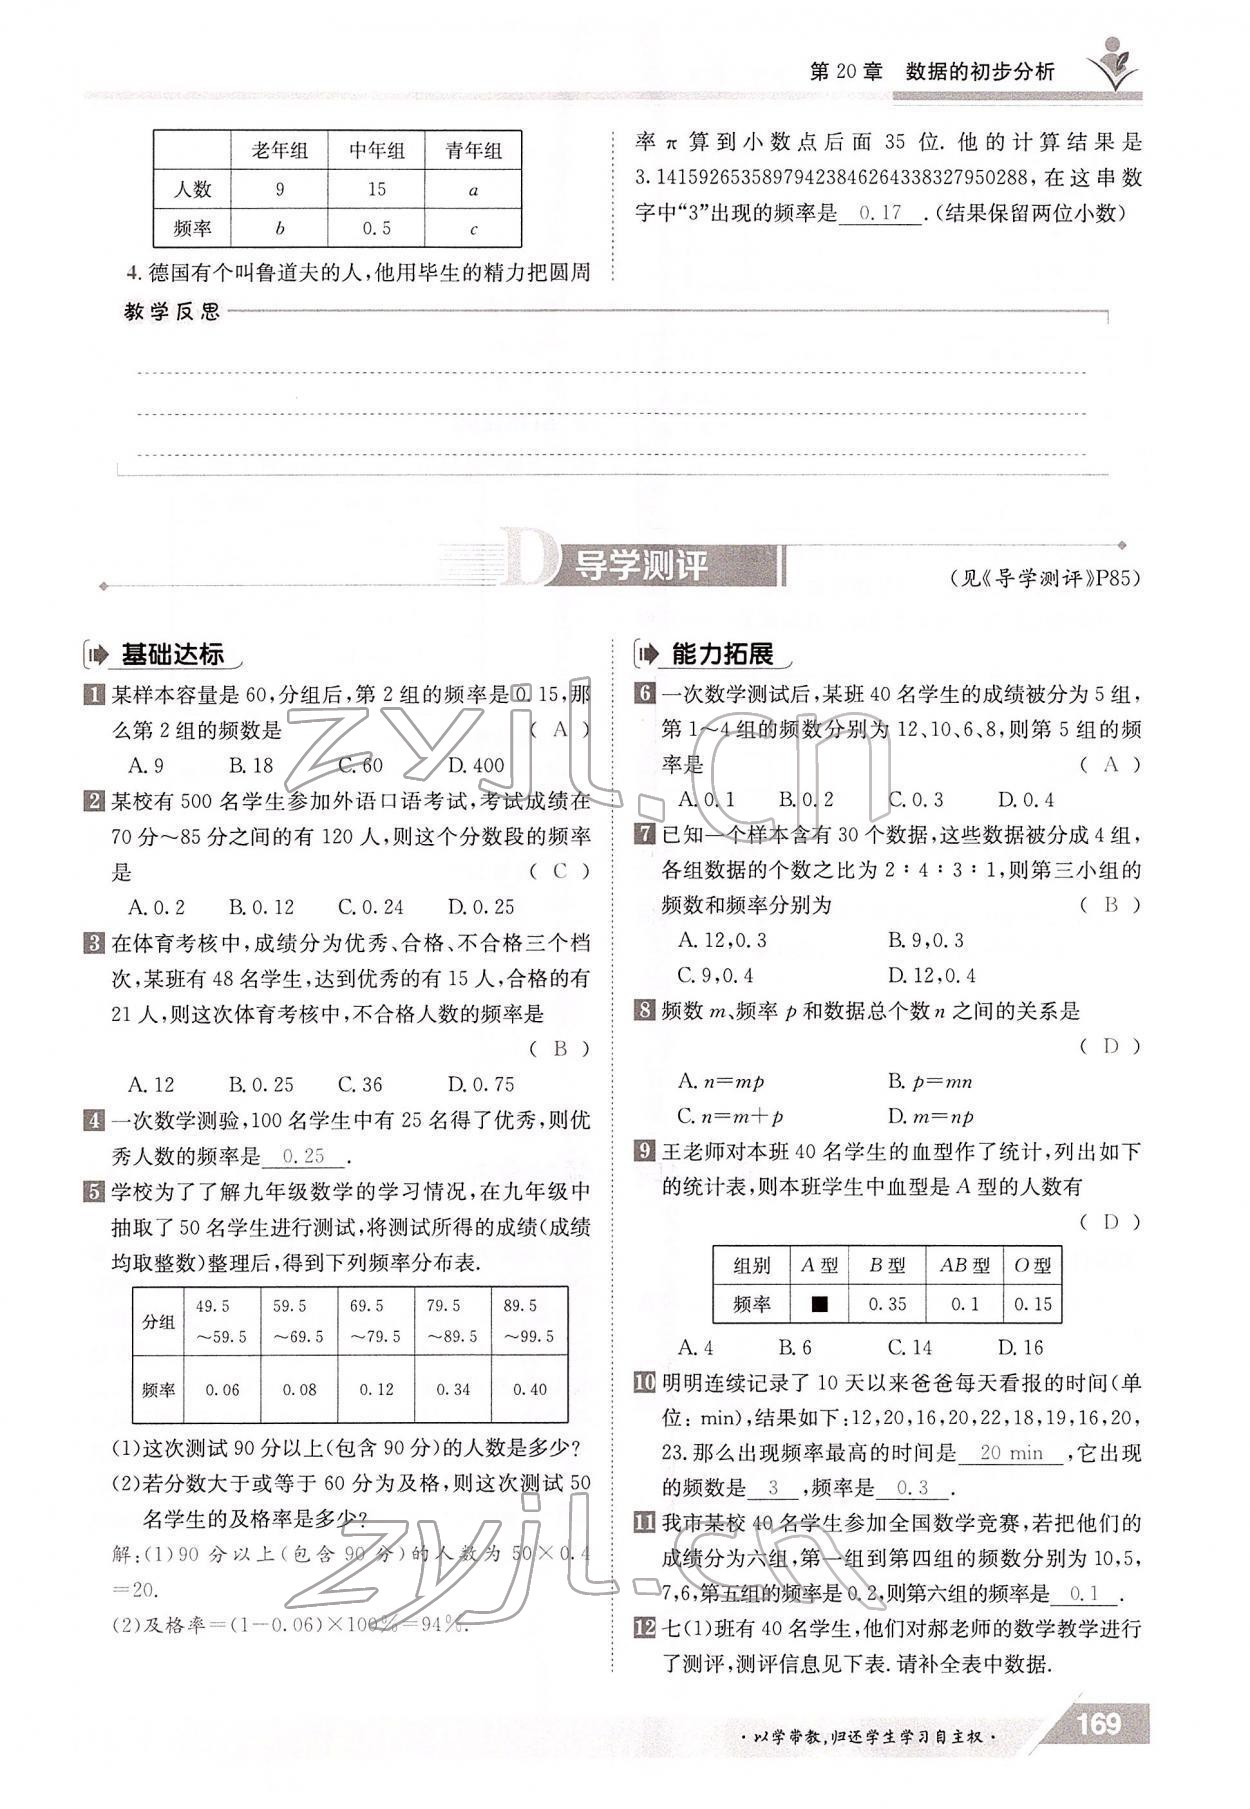 第 20 章 数据的初步分析
老年组 中年组 青年组
人数 9 15 a
频率 b 0.5 c
4. 德国有个叫鲁道夫的人,他用毕生的精力把圆周
率 π 算到小数点后面 35 位. 他的计算结果是
3.14159265358979423846264338327950288,在这串数
字中“3”出现的频率是 0.17 .(结果保留两位小数)
教学反思
D 导学测评
(见《导学测评》P85)
基础达标
1 某样本容量是 60,分组后,第 2 组的频率是 0.15,那
么第 2 组的频数是 ( A )
A. 9 B. 18 C. 60 D. 400
2 某校有 500 名学生参加外语口语考试,考试成绩在
70 分～85 分之间的有 120 人,则这个分数段的频率
是 ( C )
A. 0.2 B. 0.12 C. 0.24 D. 0.25
3 在体育考核中,成绩分为优秀、合格、不合格三个档
次,某班有 48 名学生,达到优秀的有 15 人,合格的有
21 人,则这次体育考核中,不合格人数的频率是
( B )
A. 12 B. 0.25 C. 36 D. 0.75
4 一次数学测验,100 名学生中有 25 名得了优秀,则优
秀人数的频率是 0.25 .
5 学校为了了解九年级数学的学习情况,在九年级中
抽取了 50 名学生进行测试,将测试所得的成绩(成绩
均取整数)整理后,得到下列频率分布表.
分组 49.5～59.5 59.5～69.5 69.5～79.5 79.5～89.5 89.5～99.5
频率 0.06 0.08 0.12 0.34 0.40
(1)这次测试 90 分以上(包含 90 分)的人数是多少?
(2)若分数大于或等于 60 分为及格,则这次测试 50
名学生的及格率是多少?
解:(1)90 分以上(包含 90 分)的人数为 50×0.4
=20.
(2)及格率=(1-0.06)×100%=94%.
能力拓展
6 一次数学测试后,某班 40 名学生的成绩被分为 5 组,
第 1～4 组的频数分别为 12、10、6、8,则第 5 组的频
率是 ( A )
A. 0.1 B. 0.2 C. 0.3 D. 0.4
7 已知一个样本含有 30 个数据,这些数据被分成 4 组,
各组数据的个数之比为 2∶4∶3∶1,则第三小组的
频数和频率分别为 ( B )
A. 12,0.3 B. 9,0.3
C. 9,0.4 D. 12,0.4
8 频数 m、频率 p 和数据总个数 n 之间的关系是
( D )
A. n=mp B. p=mn
C. n=m+p D. m=np
9 王老师对本班 40 名学生的血型作了统计,列出如下
的统计表,则本班学生中血型是 A 型的人数有
( D )
组别 A 型 B 型 AB 型 O 型
频率 ■ 0.35 0.1 0.15
A. 4 B. 6 C. 14 D. 16
10 明明连续记录了 10 天以来爸爸每天看报的时间(单
位: min),结果如下:12,20,16,20,22,18,19,16,20,
23. 那么出现频率最高的时间是 20 min ,它出现
的频数是 3 ,频率是 0.3 .
11 我市某校 40 名学生参加全国数学竞赛,若把他们的
成绩分为六组,第一组到第四组的频数分别为 10,5,
7,6,第五组的频率是 0.2,则第六组的频率是 0.1 .
12 七(1)班有 40 名学生,他们对郝老师的数学教学进行
了测评,测评信息见下表. 请补全表中数据.
·以学带教,归还学生学习自主权·
169
zyjl.cn
zyjl.cn